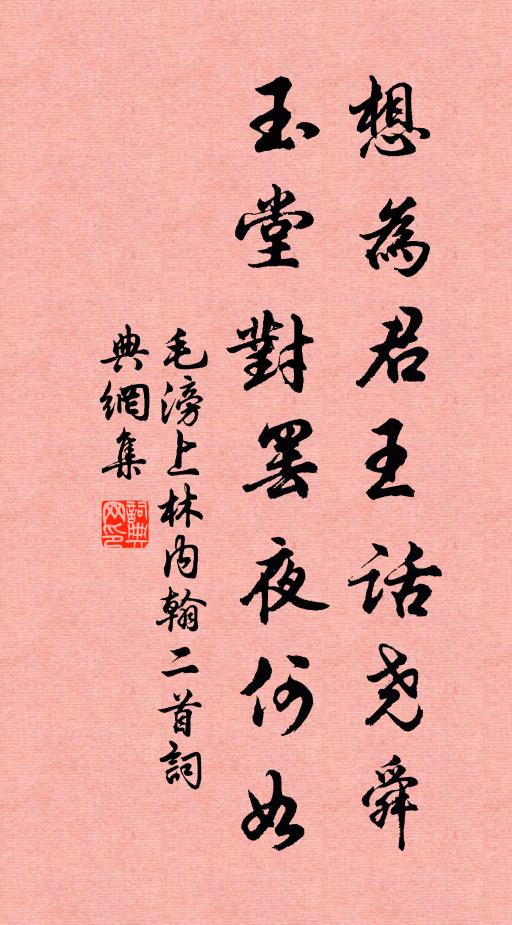 想為君王話尧舜
玉堂對罢夜何如
毛滂上林内翰二首詞
典網集
詞典
网印